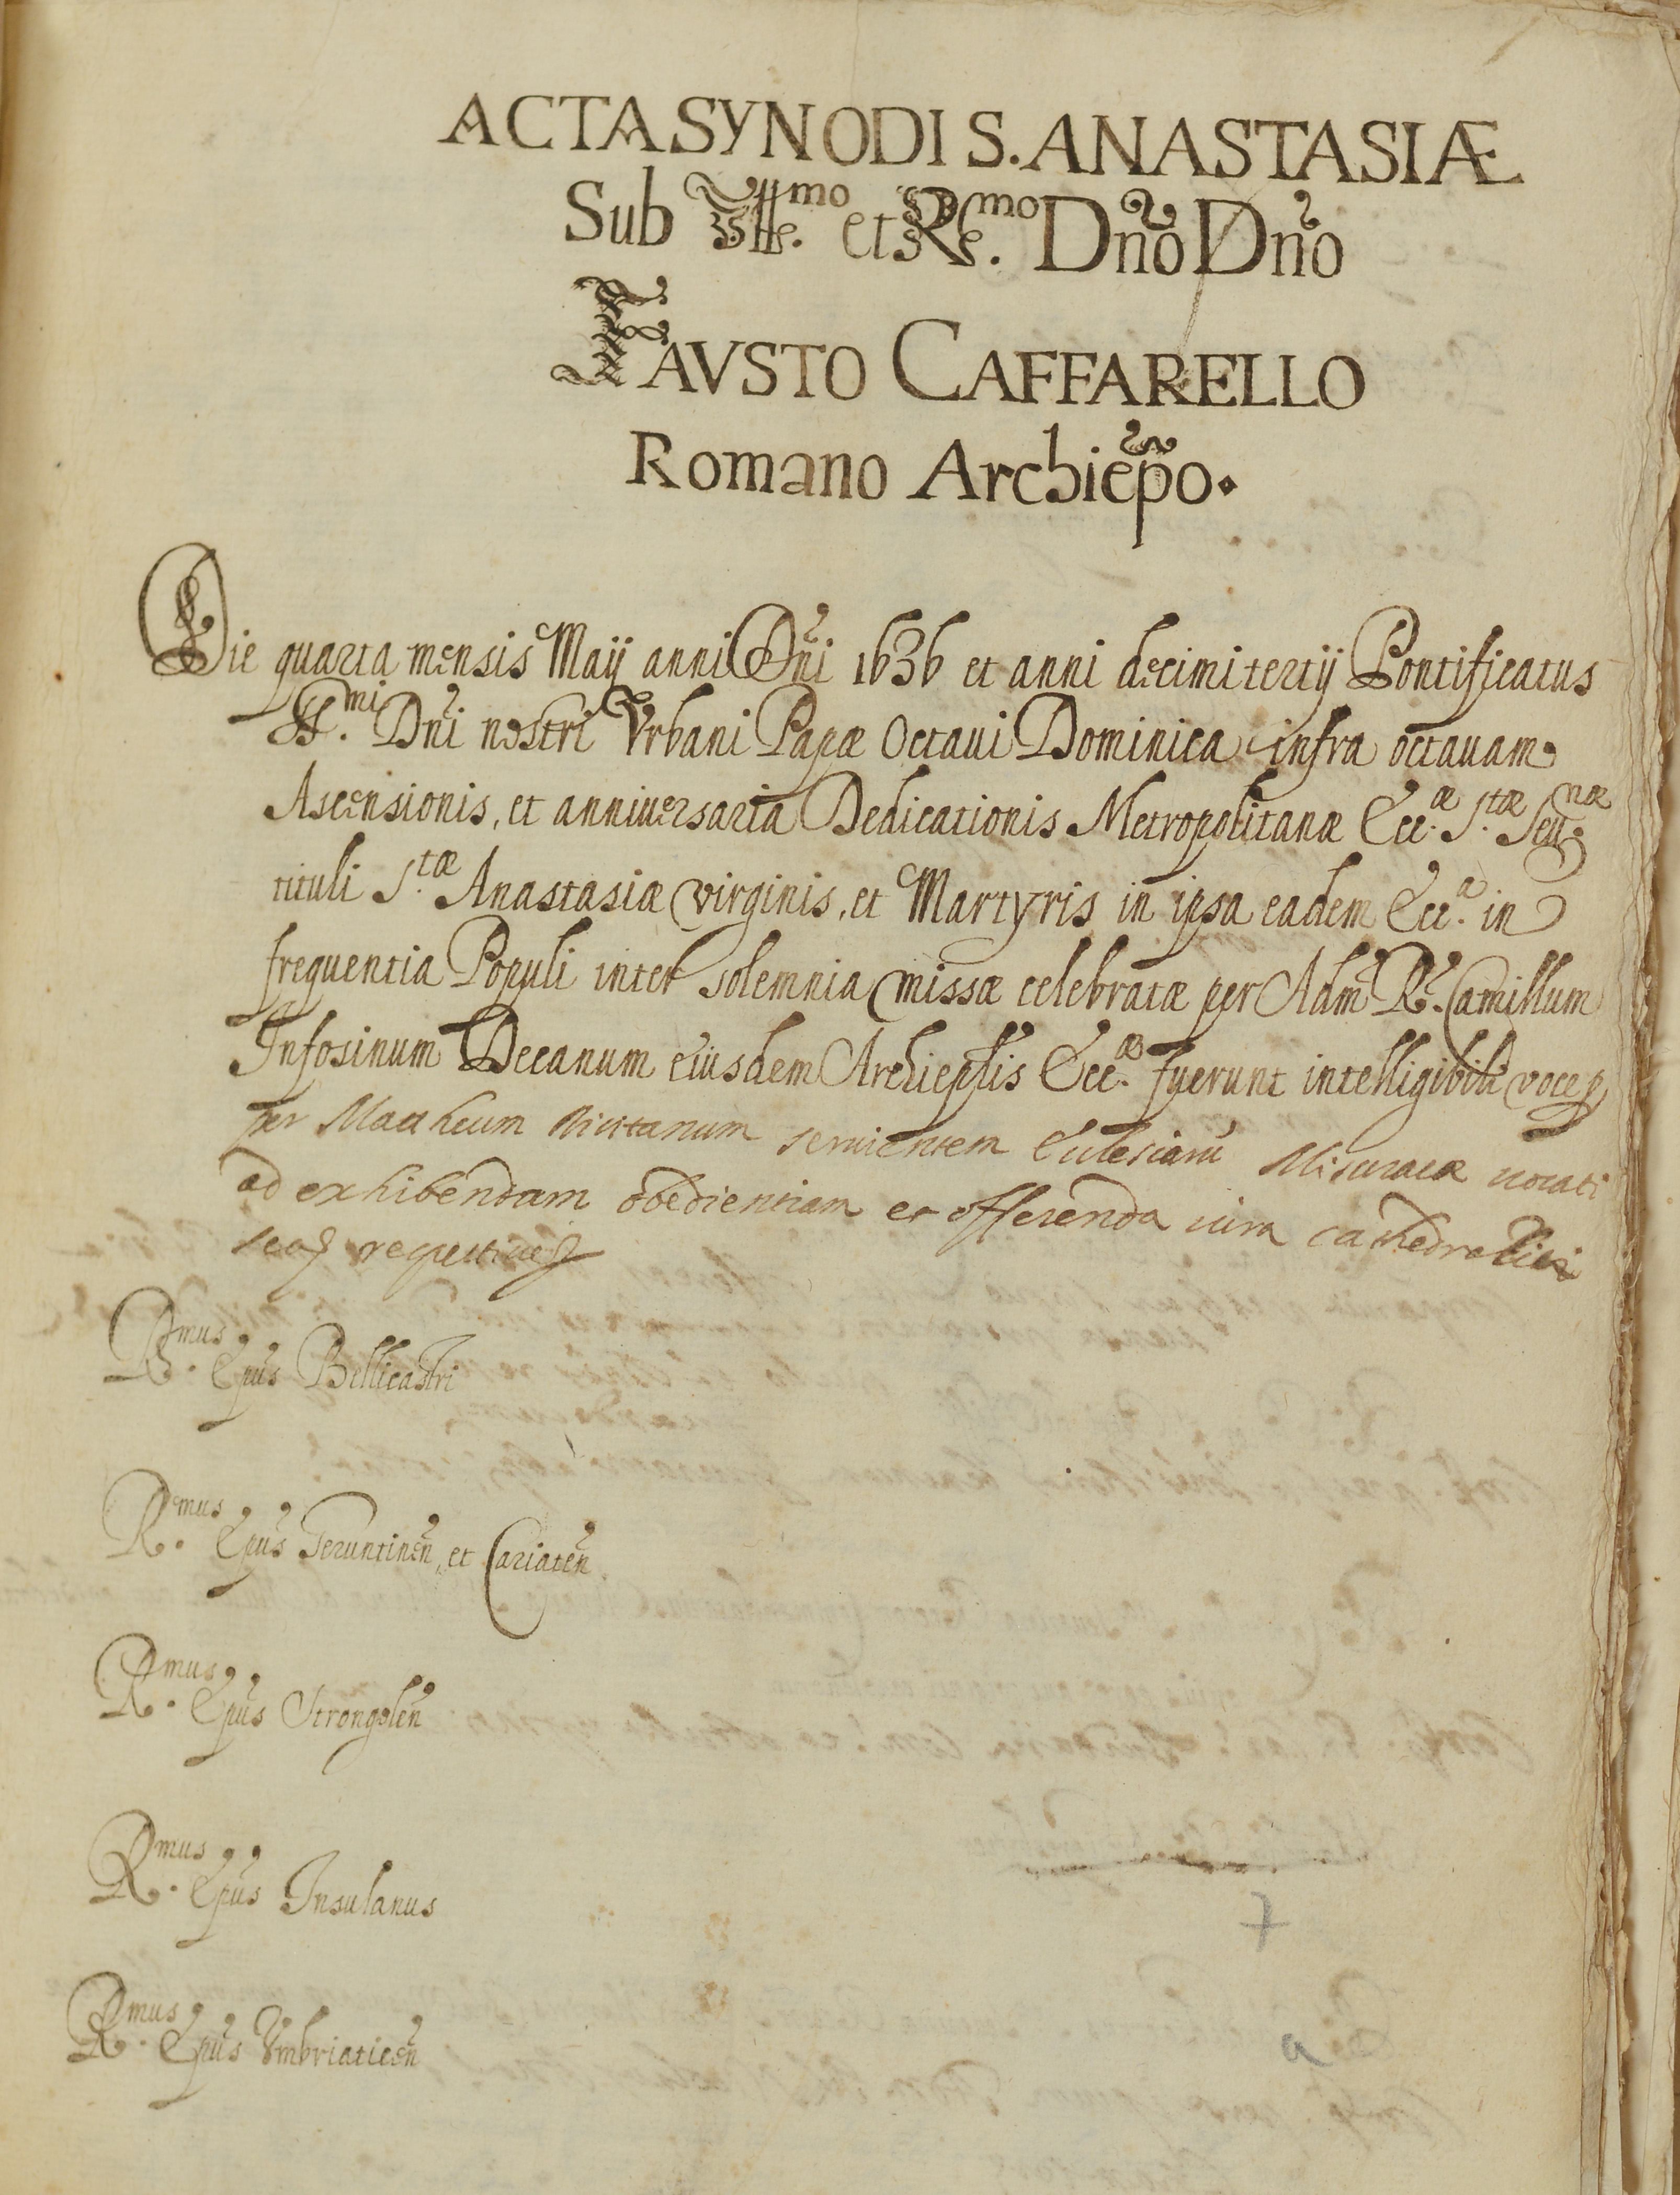 ACTA SYNODI S. ANASTASIÆ
Sub Ill.mo et R.mo Dño Dño
FAVSTO CAFFARELLO
Romano Archiep̃o.
Die quarta mensis Maij anni Dñi 1636 et anni decimi tertij Pontificatus
S.mi Dñi nostri Vrbani Papæ Octaui Dominica infra octauam
Ascensionis, et anniuersaria Dedicationis Metropolitanæ Ecc.æ S.tæ Seu.næ
tituli S.tæ Anastasiæ virginis, et Martyris in ipsa eadem Ecc.a in
frequentia Populi inter solemnia missæ celebratæ per Adm R. Camillum
Infosinum Decanum eiusdem Archiepl̃is Ecc.æ fuerunt intelligibili voce
per Mattheum seruientem Ecclesiarũ Misuracæ uocati
ad exhibendam obedientiam et offerenda iura cathedratici
R.mus Ep̃us Bellicastri
R.mus Ep̃us Geruntineñ, et Cariateñ
R.mus Ep̃us Strongoleñ
R.mus Ep̃us Insulanus
R.mus Ep̃us Vmbriaticeñ
7
a